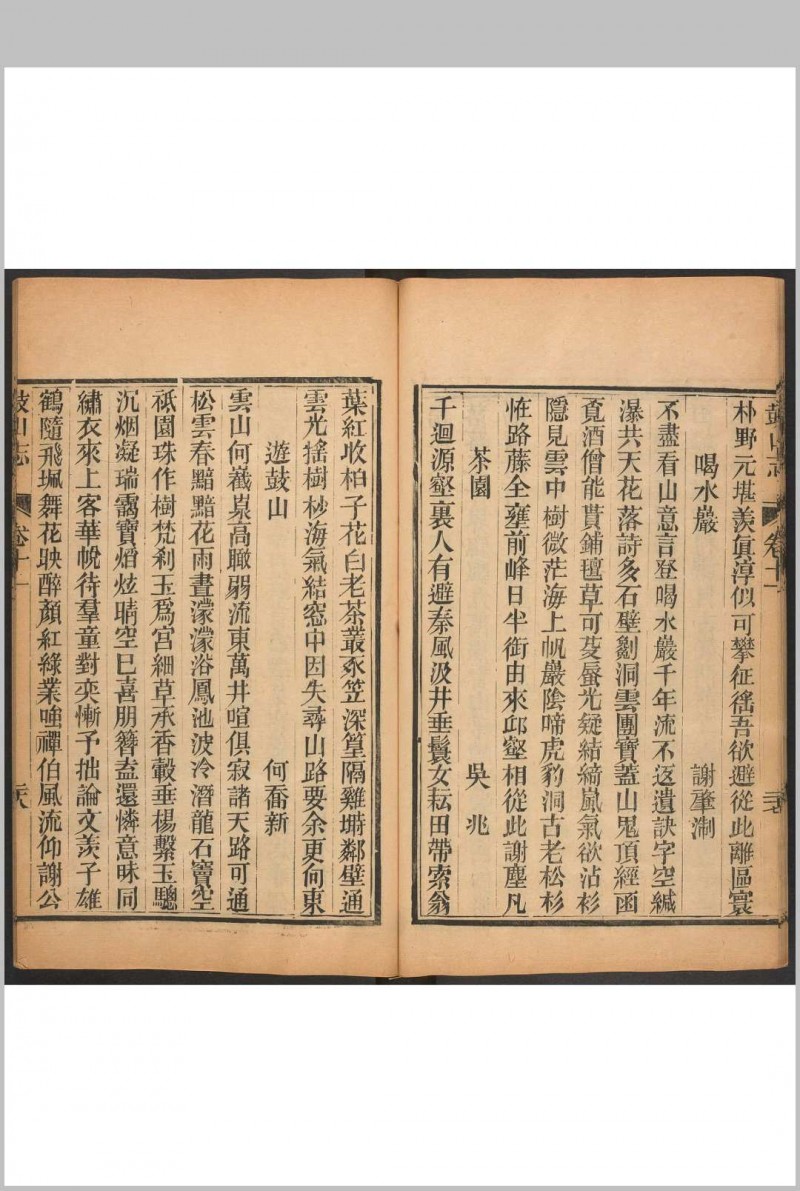 鼓山志 卷十一
朴野元堪羨眞淳似可攀征徭吾欲避從此離區寰
喝水巖 謝肇淛
不盡看山意言登喝水巖千年流不返遺訣字空緘
瀑共天花落詩多石壁劖洞雲團寶蓋山鬼頂經函
覔酒僧能貰鋪氊草可芟蜃光疑結綺嵐氣欲沾衫
隱見雲中樹微茫海上帆巖陰啼虎豹洞古老松杉
恠路藤全壅前峰日半銜由來邱壑相從此謝塵凡
茶園 吳兆
千迴源壑裏人有避秦風汲井垂鬟女耘田帶索翁
葉紅收桕子花白老茶叢豕笠深篁隔雞塒鄰壁通
雲光搖樹杪海氣結窓中因失尋山路要余更向東
遊鼓山 何喬新
雲山何嶻嶪高瞰弱流東萬井喧俱寂諸天路可通
松雲春黯黯花雨晝濛濛浴鳳池波冷潛龍石竇空
祇園珠作樹梵刹玉爲宮細草承香轂垂楊繫玉驄
沉烟凝瑞靄寶熖炫晴空已喜朋簪盍還憐意昧同
繡衣來上客華帨待羣童對奕慚予拙論文羨子雄
鶴隨飛珮舞花映醉顔紅綠業唯禪伯風流仰謝公
鼓山志 卷十一